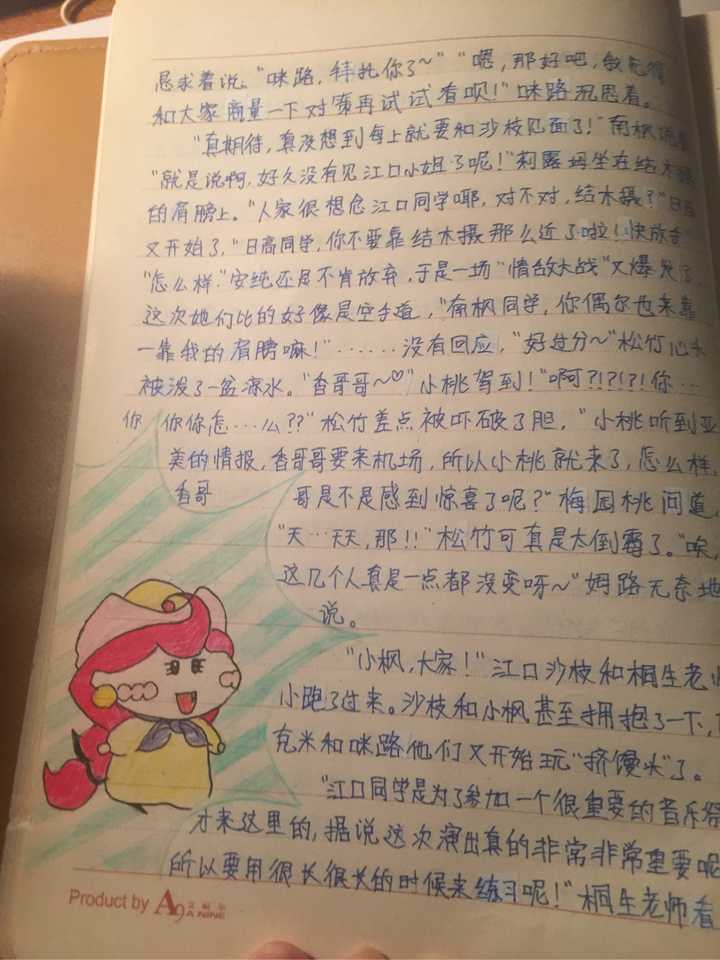 恳求着说。“咪路，拜托你了~”“嗯，那好吧，我先得
和大家商量一下对策再试试看呗！”咪路沉思着。
“真期待，真没想到马上就要和沙枝见面了！”南枫说
“就是说啊，好久没有见江口小姐了呢！”莉露姆坐在结木摄
的肩膀上。“人家很想念江口同学耶，对不对，结木摄？”日高
又开始了，“日高同学，你不要靠结木摄那么近了啦！快放手
“怎么样”安纯还是不肯放弃，于是一场“情敌大战”又爆发了
这次她们比的好像是空手道，“南枫同学，你偶尔也来靠
一靠我的肩膀嘛！”……没有回应，“好过分~”松竹心头
被泼了一盆凉水。“香哥哥~♡”小桃驾到！“啊?!?!?!你…
你 你你怎…么??”松竹差点被吓破了胆，“小桃听到亚
美的情报，香哥哥要来机场，所以小桃就来了，怎么样，
香哥 哥是不是感到惊喜了呢？”梅园桃问道，
“天…天天，那!!”松竹可真是太倒霉了。“唉，
这几个人真是一点都没变呀~”姆路无奈地
说。
“小枫，大家！”江口沙枝和桐生老师
小跑了过来。沙枝和小枫甚至拥抱了一下，
克米和咪路他们又开始玩“挤馒头”了。
“江口同学是为了参加一个很重要的音乐祭
才来这里的，据说这次演出真的非常非常重要呢
所以要用很长很长的时候来练习呢！”桐生老师看
Product by A9 A NINE